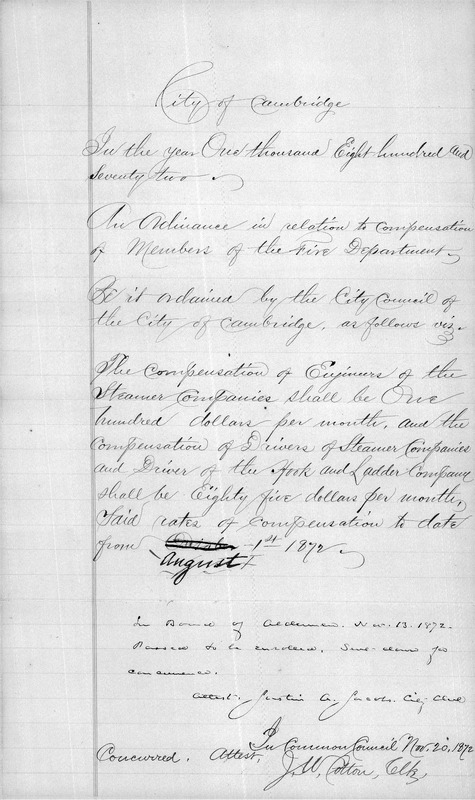 City of Cambridge
In the year One thousand Eight hundred and
Seventy two
An Ordinance in relation to compensation
of Members of the Fire Department.
Be it ordained by the City Council of
the City of Cambridge, as follows viz.
The compensation of Engineers of the
Steamer Companies shall be One
hundred dollars per month, and the
compensation of Drivers of Steamer Companies
and Driver of the Hook and Ladder Company
shall be Eighty five dollars per month,
Said rates of compensation to date
from 1st 1872
August
In Board of Aldermen. Nov. 13. 1872.
Passed to be enrolled. Sent down for
concurrence.
Attest. Justin A. Jacobs. City Clerk
In Common Council Nov. 20, 1872
Concurred. Attest,
J. W. Cotton, Clk,